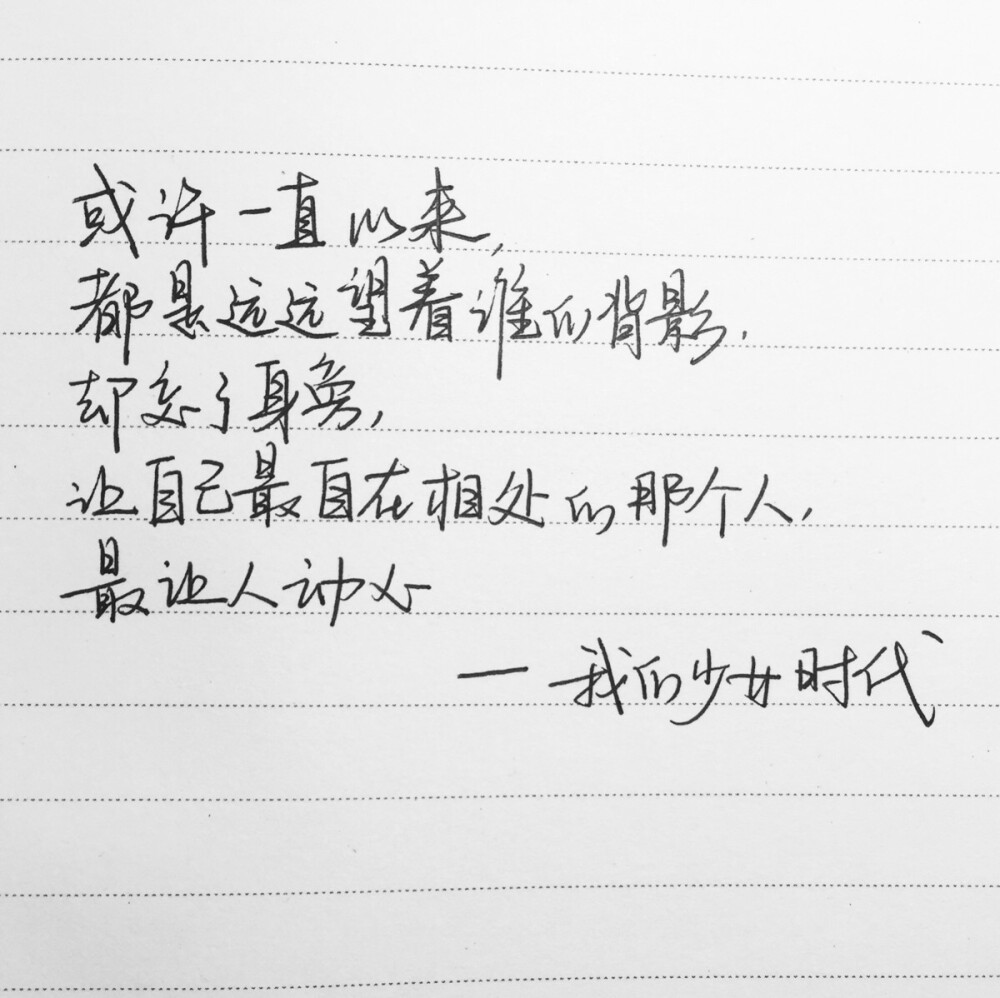 或许一直以来,
都是远远望着谁的背影.
却忘了身旁,
让自己最自在相处的那个人,
最让人动心
— 我的少女时代